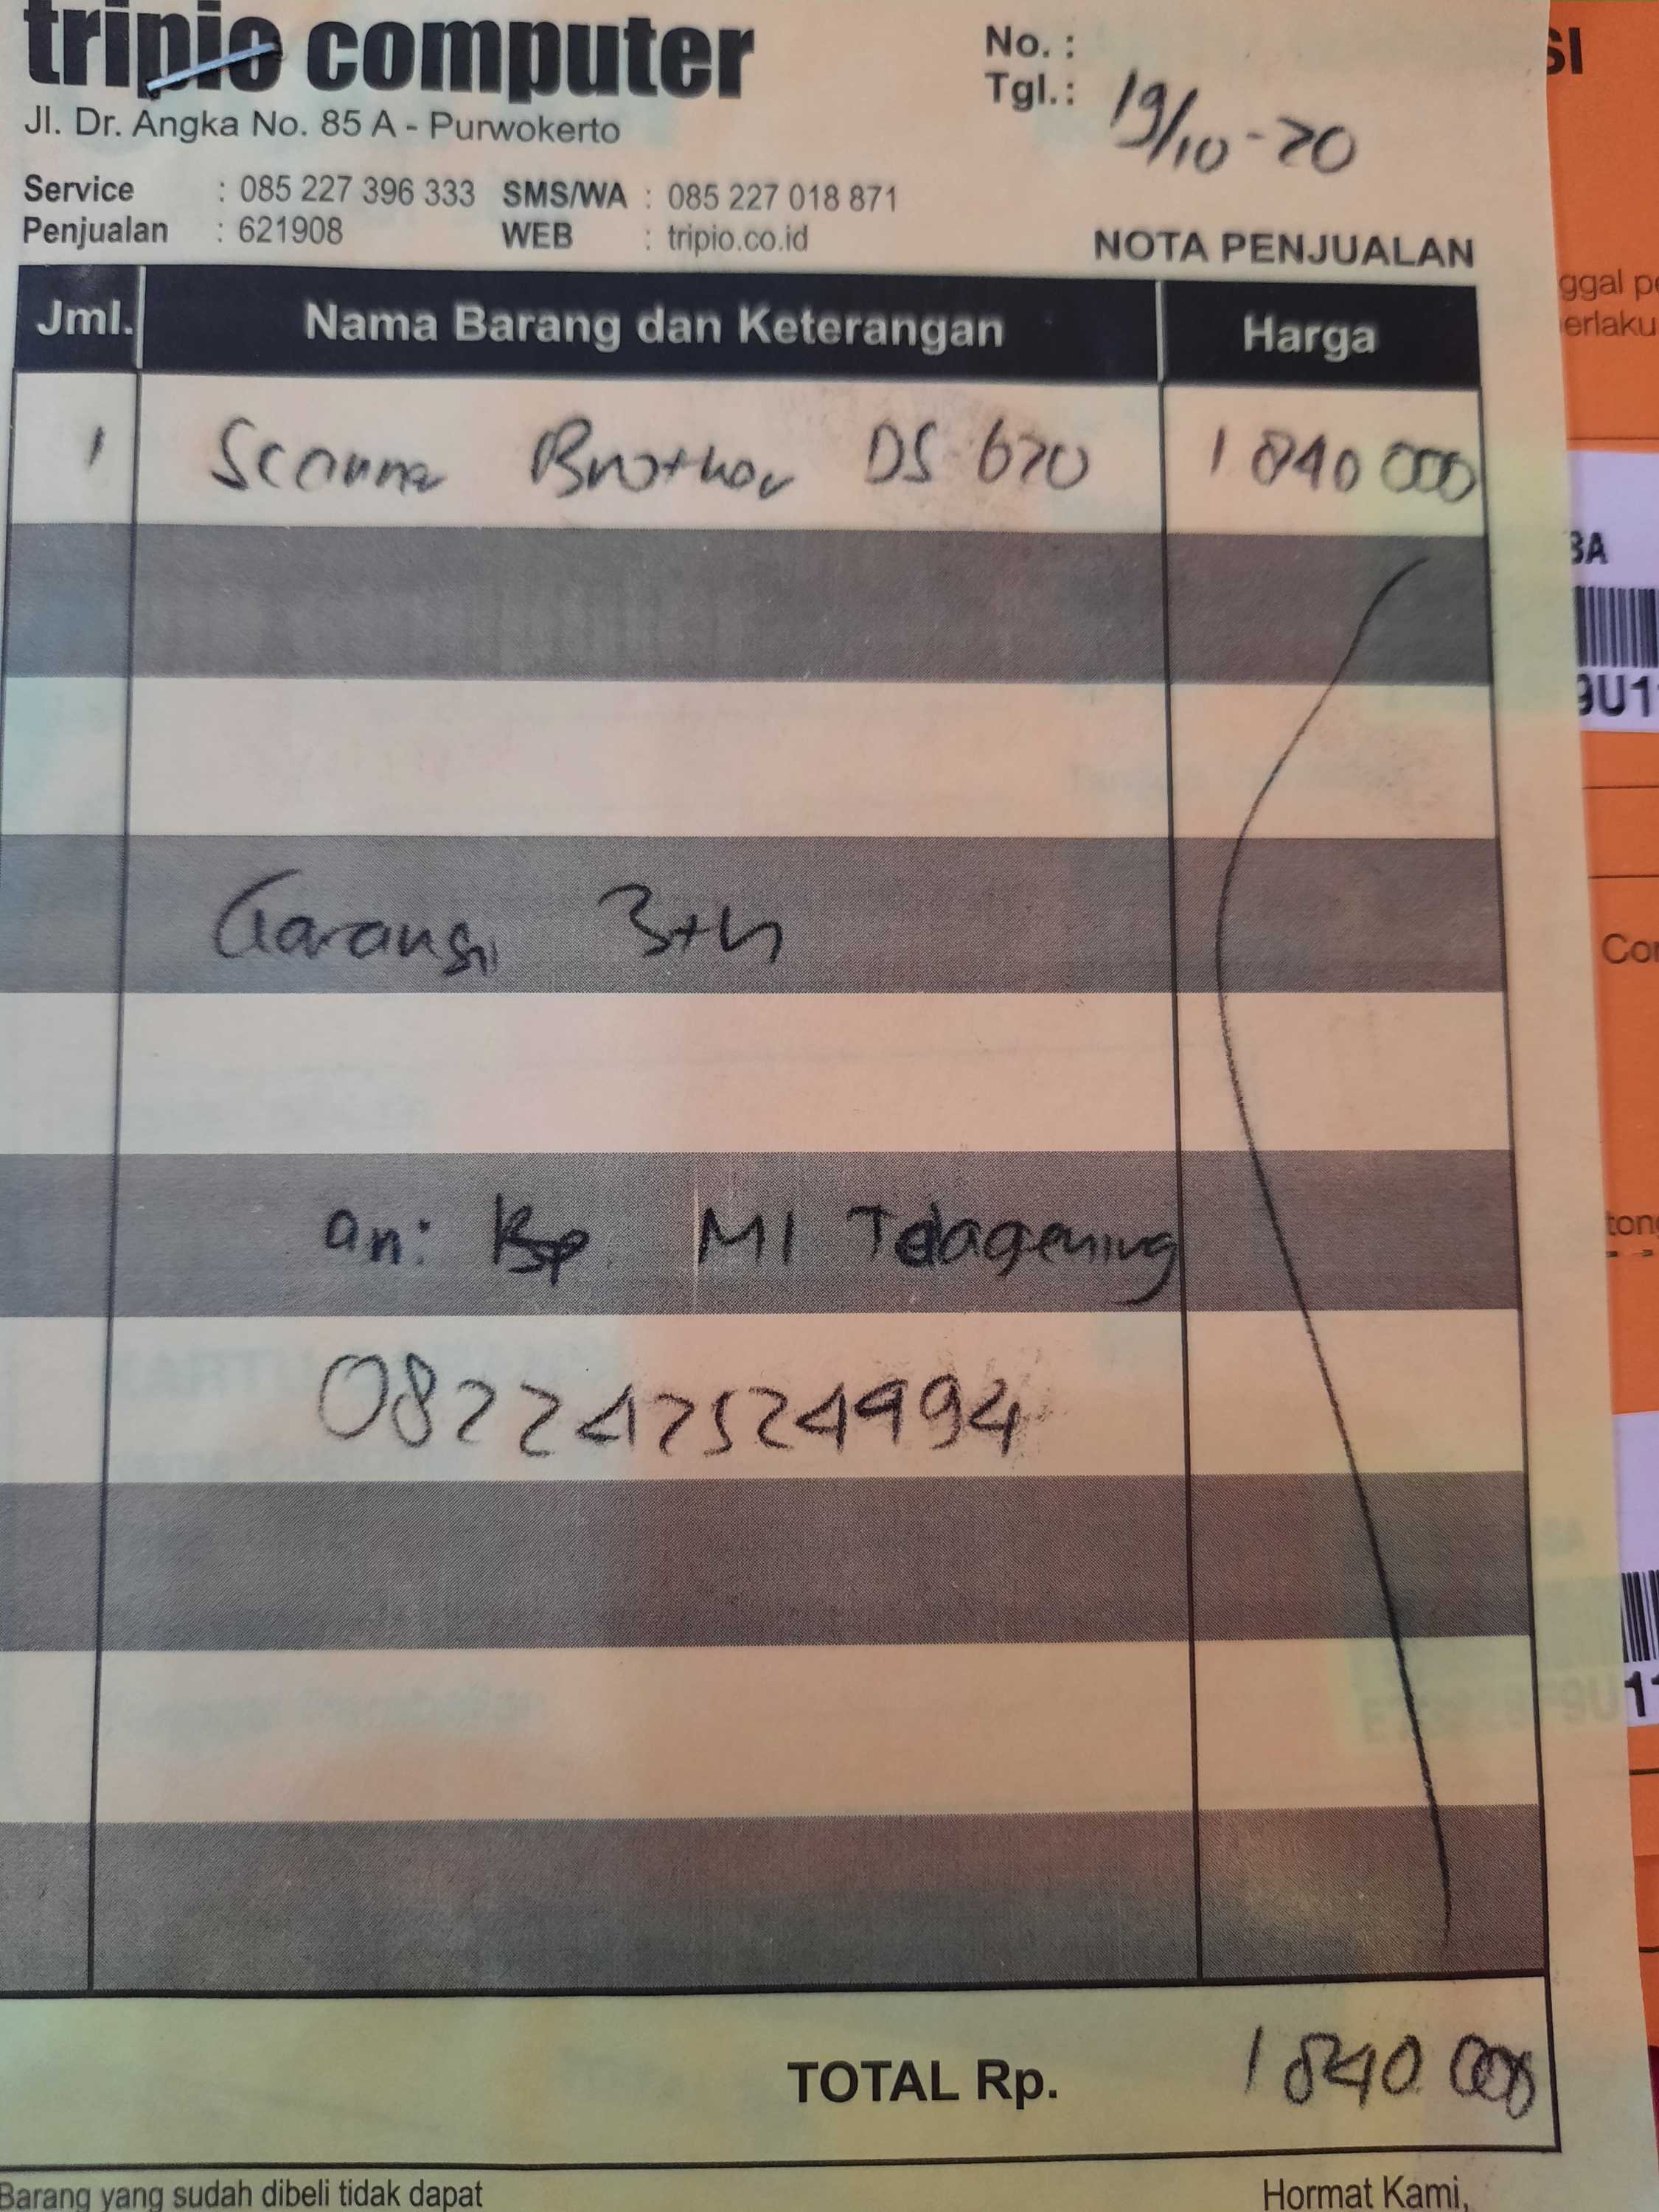 tripio computer
Jl. Dr. Angka No. 85 A - Purwokerto
Service : 085 227 396 333 SMS/WA : 085 227 018 871
Penjualan : 621908 WEB : tripio.co.id
No. :
Tgl. : 19/10-20
NOTA PENJUALAN
Jml. Nama Barang dan Keterangan Harga
1 Scanner Brother DS-620 1 840 000
Garansi 3th
an: Bp MI Telagening
082247524994
TOTAL Rp. 1 840.000
Barang yang sudah dibeli tidak dapat
Hormat Kami,
SI
ggal pe
erlaku
BA
9U1
Con
tong